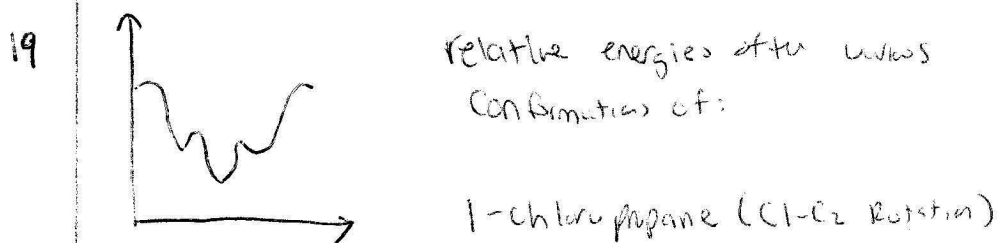 19
relative energies of the various
Conformations of:
1-chloropropane (C1-C2 Rotation)